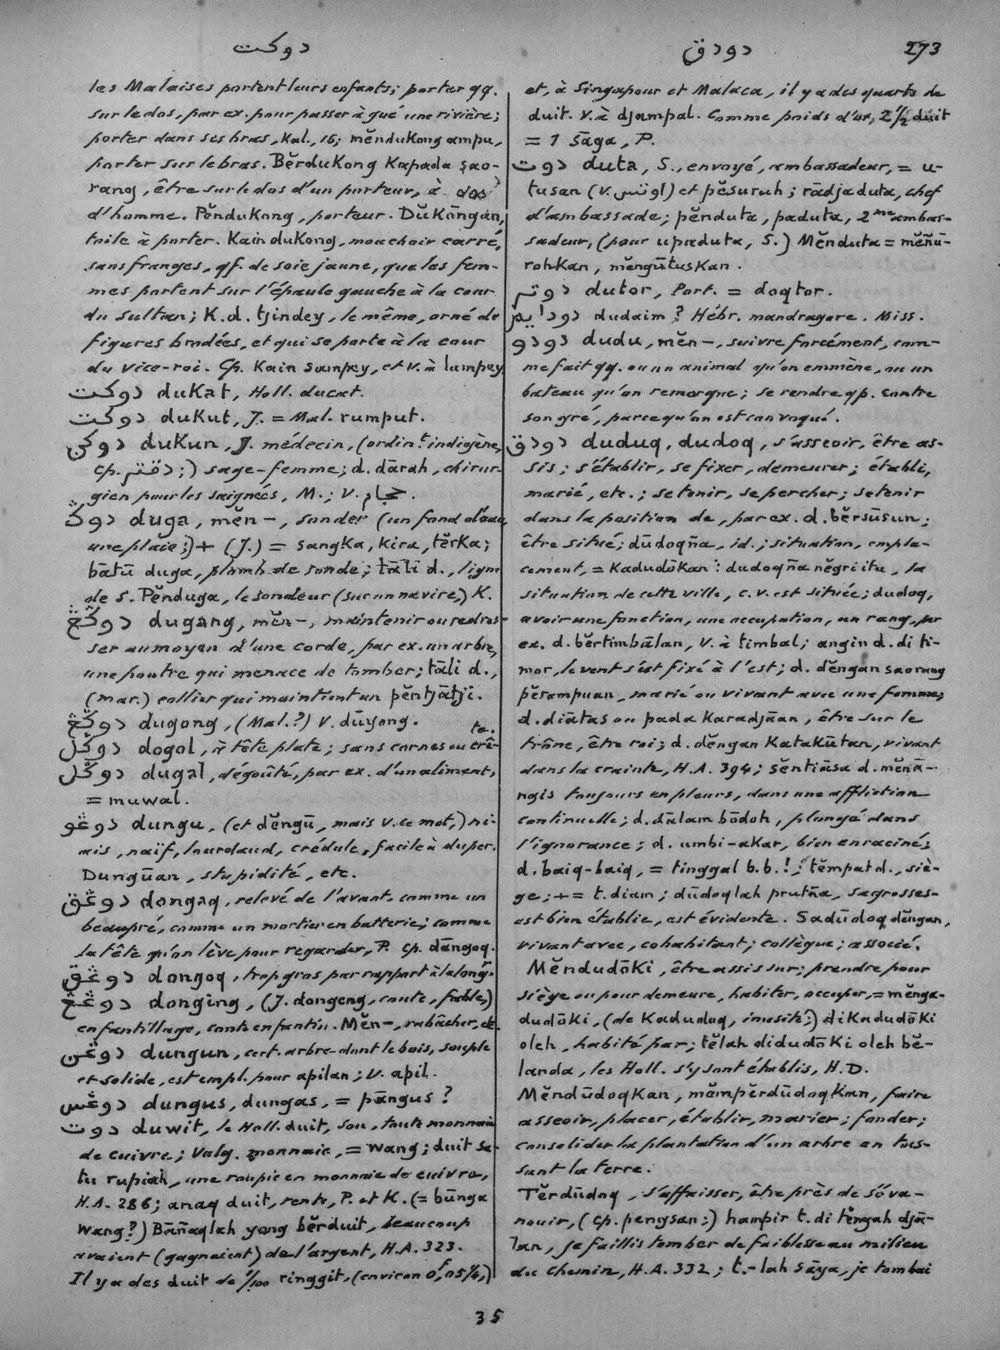 دوكت
دودق 273
les Malaises portent leurs enfants; porter qq.
sur le dos, par ex. pour passer à gué une rivière;
porter dans ses bras, Kal., 15; mĕndukong ampu,
porter sur le bras. Bĕrdukong Kapada sao-
rang, être sur le dos d'un porteur, à dos
d'homme. Pĕndukong, porteur. Dŭkōngan,
toile à porter. Kain dukong, mouchoir carré,
sans franges, qf. de soie jaune, que les fem-
mes portent sur l'épaule gauche à la cour
du sultan; K. d. tjindey, le même, orné de
figures brodées, et qui se porte à la cour
du vice-roi. Cp. Kain sampey, et v. à lampey
دوكت dukat, Holl. ducat.
دوكت dukut, J. = Mal. rumput.
دوكن dukun, J. médecin, (ordin.t indigène,
cp. دقتر;) sage-femme; d. dārah, chirur-
gien pour les saignées, M.; v. حجام.
دوݢ duga, mĕn-, sonder (un fond d'eau,
une plaie;) + (J.) = sangka, kira, tĕrka;
bātū duga, plomb de sonde; tāli d., ligne
de s. Pĕnduga, le sondeur (sur un navire,) K.
دوݢڠ dugang, mĕn-, maintenir ou redres-
ser au moyen d'une corde, par ex. un arbre,
une poutre qui menace de tomber; tāli d.,
(mar.) collier qui maintient un pĕntjātji.
دوݢڠ dugong, (Mal.?) v. dūyong.
دوݢل dogol, à tête plate; sans cornes ou crê-te.
دوݢل dugal, dégoûté, par ex. d'un aliment,
= muwal.
دوڠو dungu, (et dĕngū, mais v. ce mot,) ni-
ais, naïf, lourdaud, crédule, facile à duper.
Dungūan, stupidité, etc.
دوڠق dongaq, relevé de l'avant, comme un
beaupré, comme un mortier en batterie; comme
la tête qu'on lève pour regarder, P. Cp. dāngoq.
دوڠق dongoq, trop gros par rapport à la long.r
دوڠڠ donging, (J. dongeng, conte, fable,)
enfantillage, conte enfantin. Mĕn-, rabâcher, etc.
دوڠن dungun, cert. arbre dont le bois, souple
et solide, est empl. pour apilan; v. apil.
دوڠس dungus, dungas, = pāngus?
دوت duwit, le Holl. duit, sou, toute monnaie
de cuivre; Valg. monnaie, = wang; duit sa-
tu rupiah, une roupie en monnaie de cuivre,
H.A. 286; anaq duit, rente, P. et K. (= būnga
wang?) Bāñaqlah yang bĕrduit, beaucoup
avaient (gagnaient) de l'argent, H.A. 323.
Il y a des duit de 1/100 ringgit, (environ 0f,05 1/4,)
et, à Singapour et Malaca, il y a des quarts de
duit. V. à djampal. Comme poids d'or, 2 1/2 duit
= 1 sāga, P.
دوت duta, S., envoyé, ambassadeur, = u-
tusan (v. اوتس) et pĕsuruh; rādja duta, chef
d'ambassade; pĕnduta, paduta, 2me ambas-
sadeur, (pour upaduta, S.) Mĕnduta = mĕñū-
rohkan, mĕngūtuskan.
دوتر dutor, Port. = doqtor.
دودايم dudaim? Hébr. mandragore. Miss.
دودو dudu, mĕn-, suivre forcément, com-
me fait qq. ou un animal qu'on emmène, ou un
bateau qu'on remorque; se rendre qp. contre
son gré, parce qu'on est convoqué.
دودق duduq, dudoq, s'asseoir, être as-
sis; s'établir, se fixer, demeurer; établi,
marié, etc.; se tenir, se percher; se tenir
dans la position de, par ex. d. bĕrsūsun;
être situé; dūdoqña, id.; situation, empla-
cement, = kadudōkan: dudoqña nĕgri itu, la
situation de cette ville, c. v. est située; dudoq,
avoir une fonction, une occupation, un rang, par
ex. d. bĕrtimbālan, v. à timbal; angin d. di ti-
mor, le vent s'est fixé à l'est; d. dĕngan saorang
pĕrampuan, marié ou vivant avec une femme;
d. diātas ou pada karadjāan, être sur le
trône, être roi; d. dĕngan katakūtan, vivant
dans la crainte, H.A. 394; sĕntiāsa d. mĕnā-
ngis toujours en pleurs, dans une affliction
continuelle; d. dālam bōdoh, plongé dans
l'ignorance; d. umbi-akar, bien enraciné;
d. baiq-baiq, = tinggal b.b.!; tĕmpat d., siè-
ge; += t. diam; dūdoqlah prutña, sa grosses-
est bien établie, est évidente. Sadūdoq dĕngan,
vivant avec, cohabitant; collègue; associé.
Mĕndudōki, être assis sur; prendre pour
siège ou pour demeure, habiter, occuper, = mĕnga-
dudōki, (de kadudoq, inusité;) dikadudōki
oleh, habité par; tĕlah didudōki oleh bĕ-
landa, les Holl. s'y sont établis, H.D.
Mĕndūdoqkan, mĕmpĕrdūdoqkan, faire
asseoir, placer, établir, marier; fonder;
consolider la plantation d'un arbre en tas-
sant la terre.
Tĕrdūdoq, s'affaisser, être près de s'éva-
nouir, (cp. pengsan;) hampir t. di tĕngah djā-
lan, je faillis tomber de faiblesse au milieu
du chemin, H.A. 332; t.-lah sāya, je tombai
35